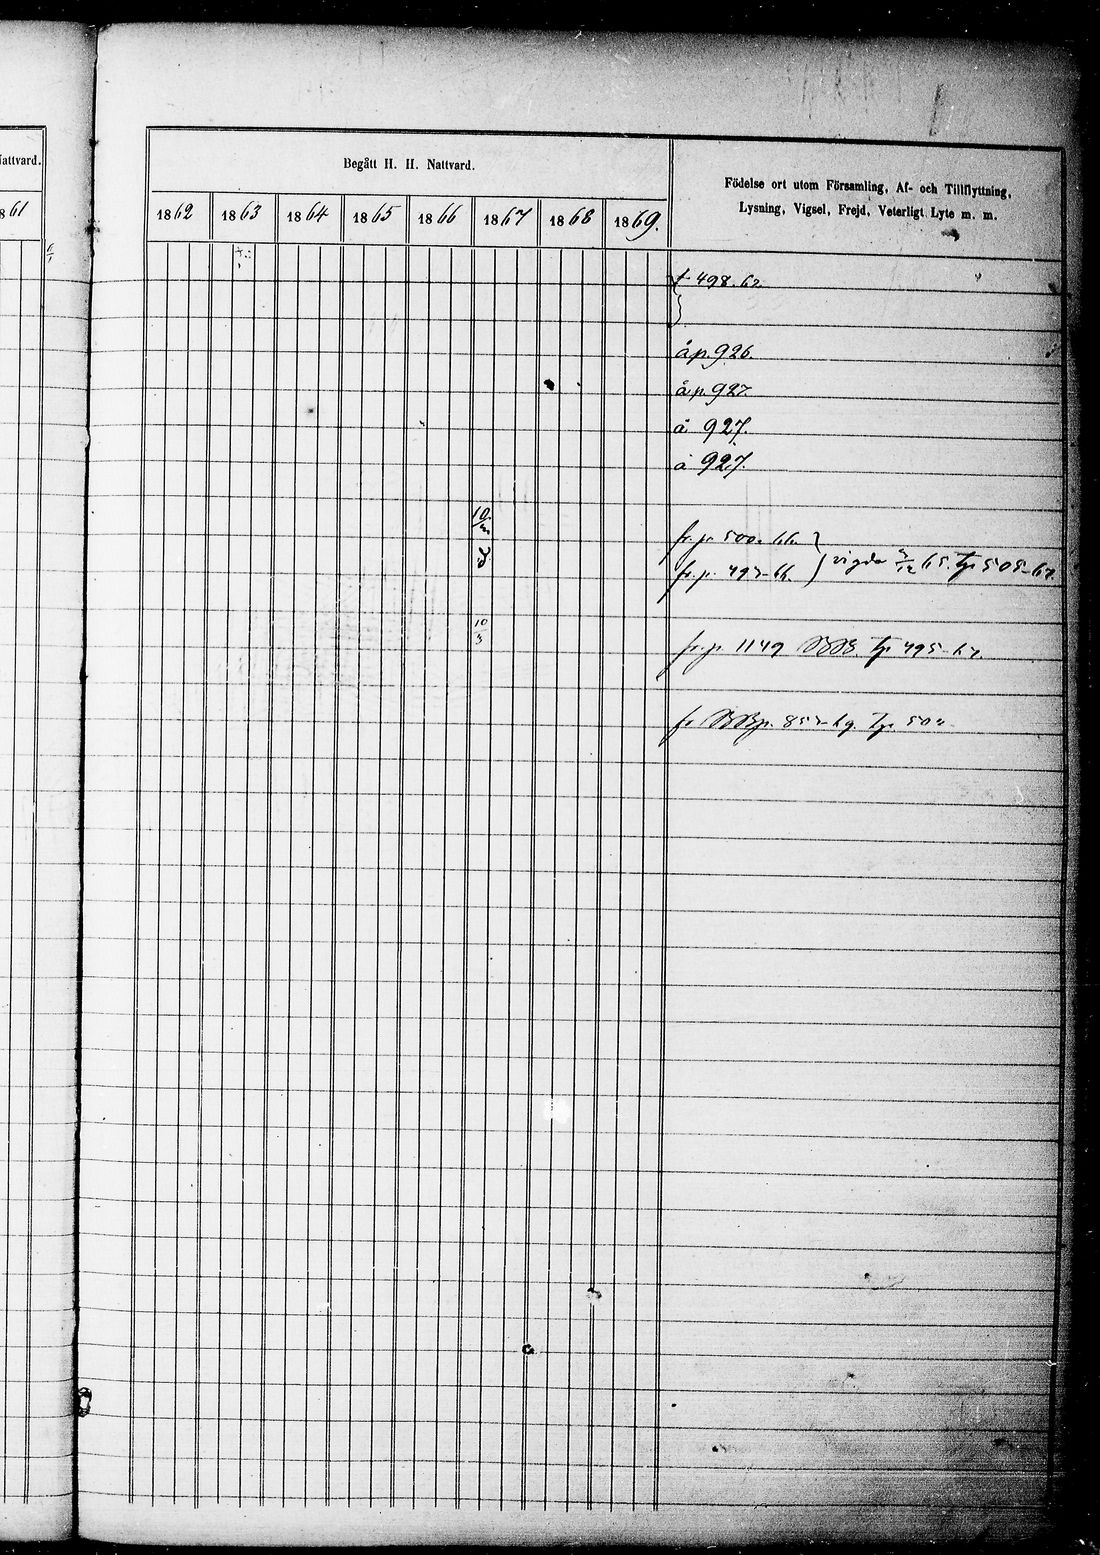 Nattvard.
861
Begått H. H. Nattvard.
Födelse ort utom Församling, Af- och Tillflyttning,
Lysning, Vigsel, Frejd, Veterligt Lyte m. m.
1862 1863 1864 1865 1866 1867 1868 1869.
t 498. 62
å p. 926.
å p. 927.
å 927.
å 927.
10/3
fr. p. 500. 66
fr. p. 493-66. } vigda 65. Tp 505-67.
10/3
fr. p. 1149 Tp 495-67.
fr p. Tp. 50